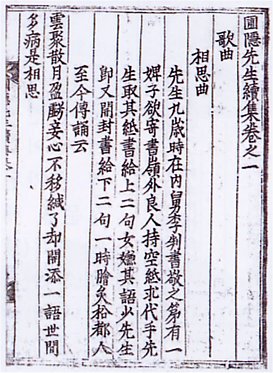 圃隱先生續集卷之一
歌曲
相思曲
先生九歲時在内舅李判書敬之第有一
婢子欲寄書嶺外良人持空紙求代手先
生取其紙書給上二句女嫌其語少先生
卽又開封書給下二句一時膾炙於都人
至今傳誦云
雲聚散月盈虧妾心不移緘了却開添一語世間
多病是相思